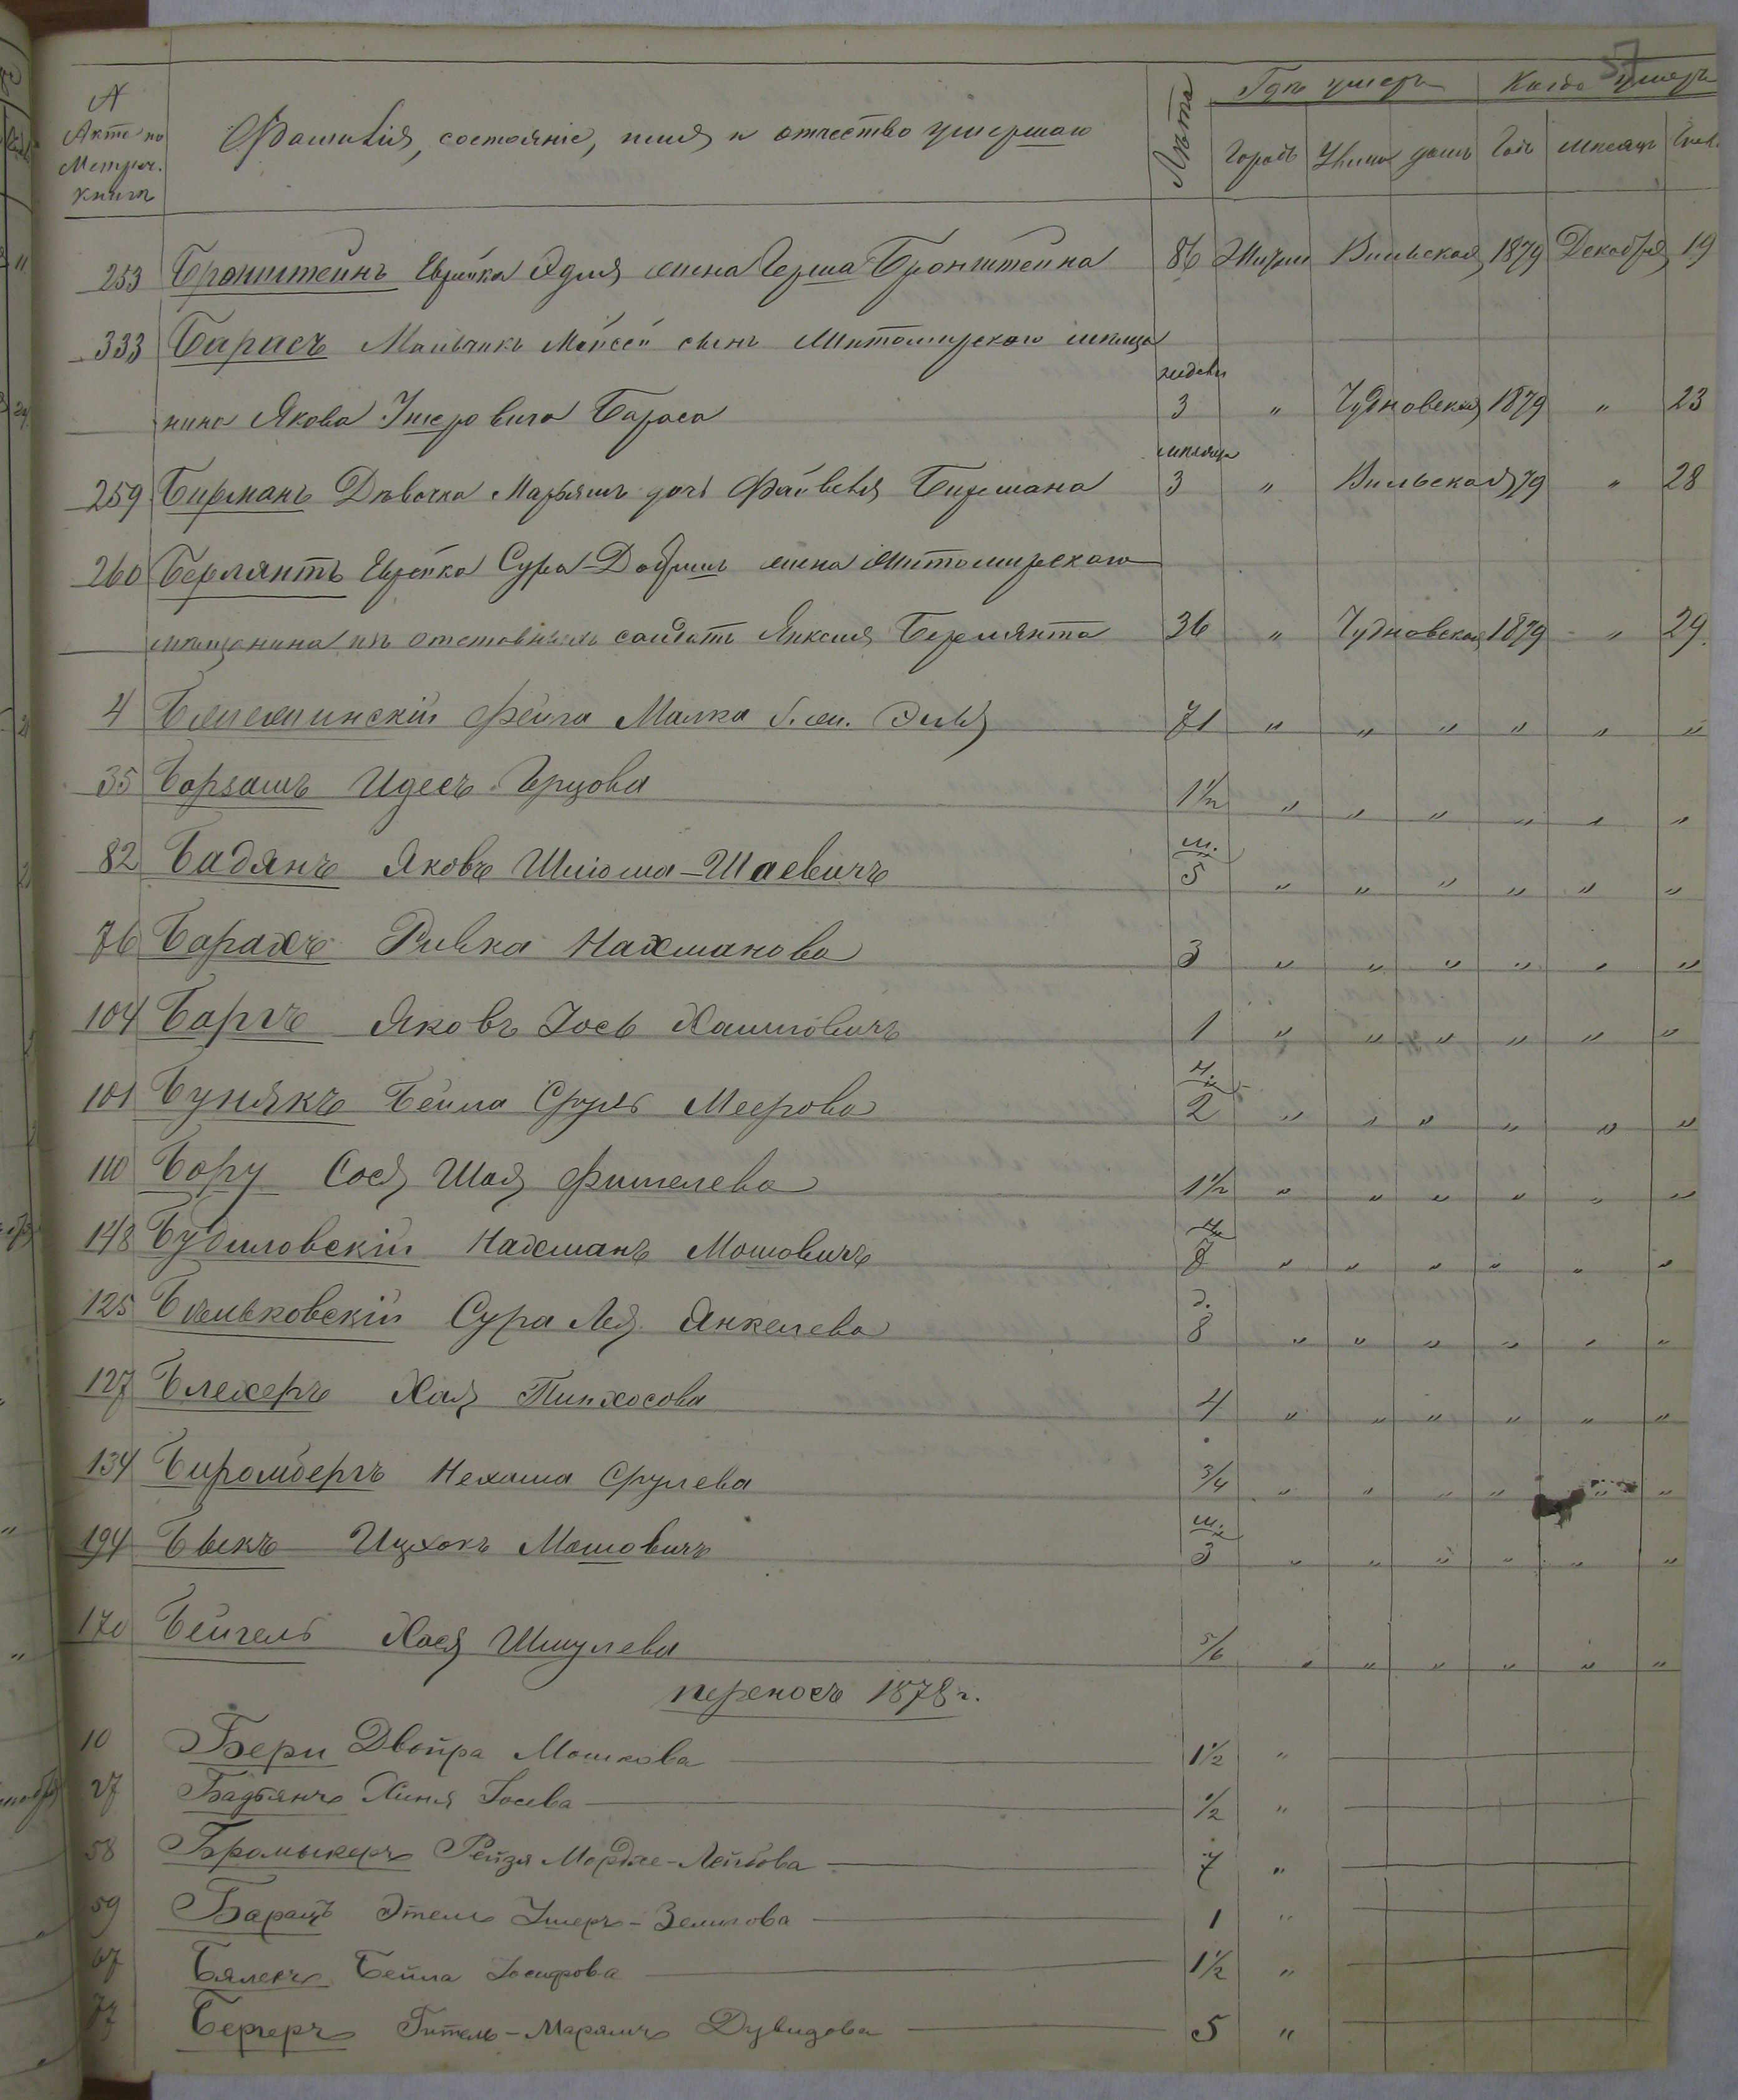 57
№
Акта по
Метрич.
книгѣ
Фамилія, состояніе, имя и отчество умершаго
Лѣта
Гдѣ умеръ
Когда умеръ
Городъ Улица домъ Годъ мѣсяцъ
253 Бронштейнъ Еврейка Эдля жена Герша Бронштейна 86 Житом Вильская 1879 Декабря 19
333 Барасъ Мальчикъ Мойсей сынъ Житомирскаго мѣща
нина Якова Ушеровича Бараса недѣли 3 " Чудновская 1879 " 23
259 Бирманъ Дѣвочка Марьямъ дочь Файвеля Бирмана мѣсяца 3 " Вильская 79 " 28
260 Берлянтъ Еврейка Сура-Добришъ жена Житомирскаго
мѣщанина изъ отставныхъ солдатъ Янкеля Берлянта 36 " Чудновская 1879 " 29.
4 Фейга Малка 71 " " " " " "
35 Борзамъ Идесъ Герцова 1½ " " " " " "
82 Бадянъ Яковъ Шлiома-Шаевичъ м. 5 " " " " " "
76 Барахъ Ривка Нахманова 3 " " " " " "
104 Баргъ Яковъ Іось Хаимовичъ 1 " " " " " "
101 Бунякъ Бейла Сруль Меерова н. 2 " " " " " "
110 Бору Сося Шая Фишелева 1½ " " " " " "
148 Будиловскій Нахманъ Мошовичъ " " " " " "
125 Сура Лея Янкелева д. 8 " " " " " "
127 Блехеръ Хая Пинхосова 4 " " " " " "
134 Биромбергъ Нехама Срулева 3/4 " " " " " "
194 Быкъ Ицхокъ Мошовичъ м. 3 " " " " " "
170 Бейгель Хася Шмулева 5/6 " " " " " "
переносъ 1878 г.
10 Бери Двойра Мошкова 1½ "
27 Бадьянъ Хиня Іосева ½ "
58 Ройзя Мордхе-Лейбова 7 "
59 Баращъ Этель Ушеръ-Зелигова 1 "
67 Бялекъ Бейла Іосифова 1½ "
77 Бергеръ Гитель-Марямъ Дувидова 5 "